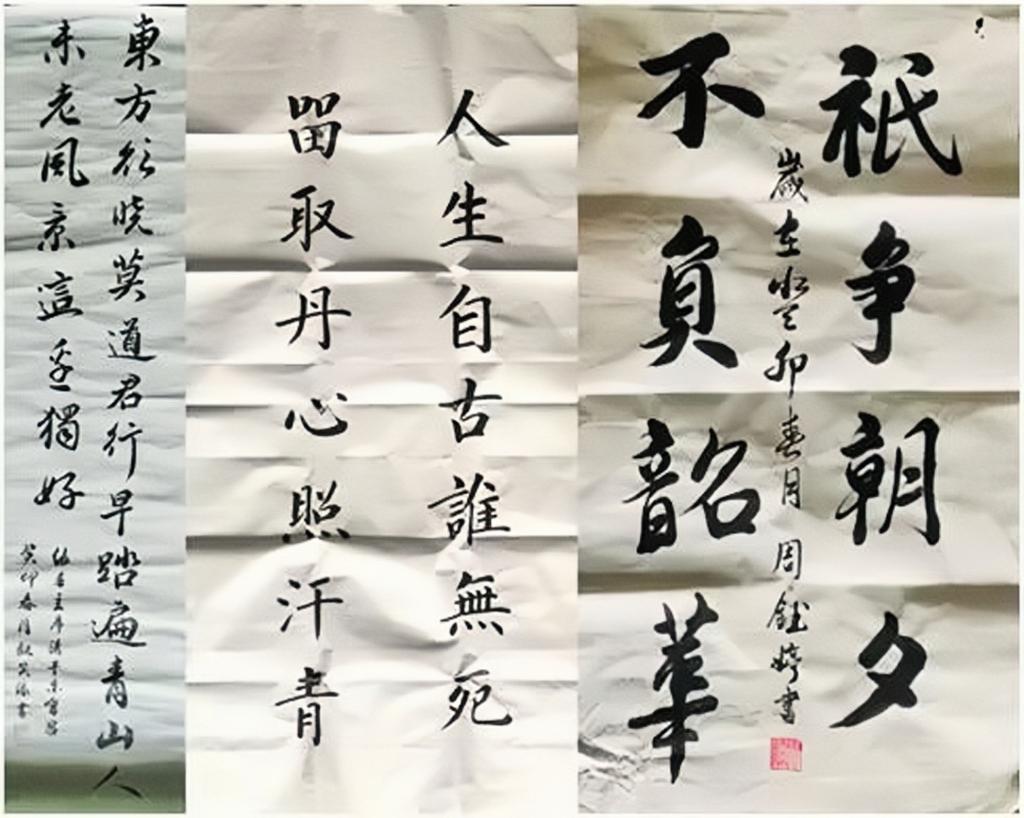 祇争朝夕
不負韶華
歲在癸卯春月 周鈺婷書
人生自古誰無死
留取丹心照汗青
東方欲晓莫道君行早踏遍青山人
未老風景這邊獨好
毛主席清平樂會昌
癸卯春月 書